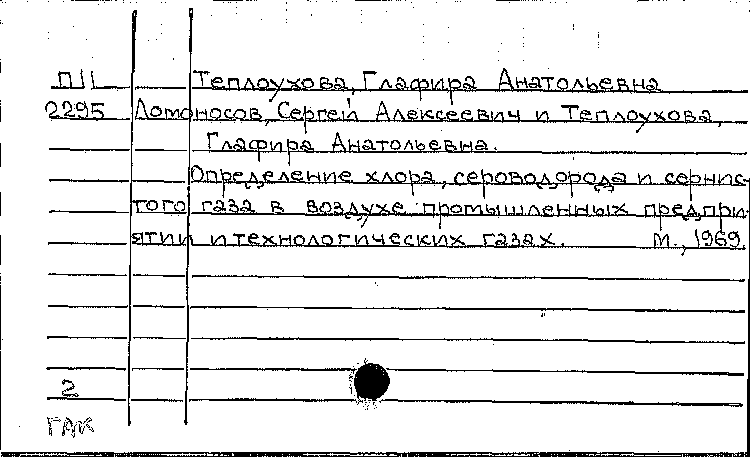 П11 Теплоухова, Глафира Анатольевна
2295 Ломоносов, Сергей Алексеевич и Теплоухова,
Глафира Анатольевна.
Определение хлора, сероводорода и сернис-
того газа в воздухе промышленных предпри-
ятий и технологических газах. М., 1969.
2
ГАК